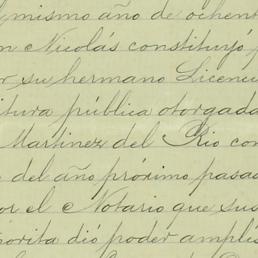 mismo año de ochent
n Nicolás constituyó
su hermano Licenci
itura pública otorgada
Martinez del Rio con
del año próximo pasad
or el Notario que sus
ñorita dió poder ampli